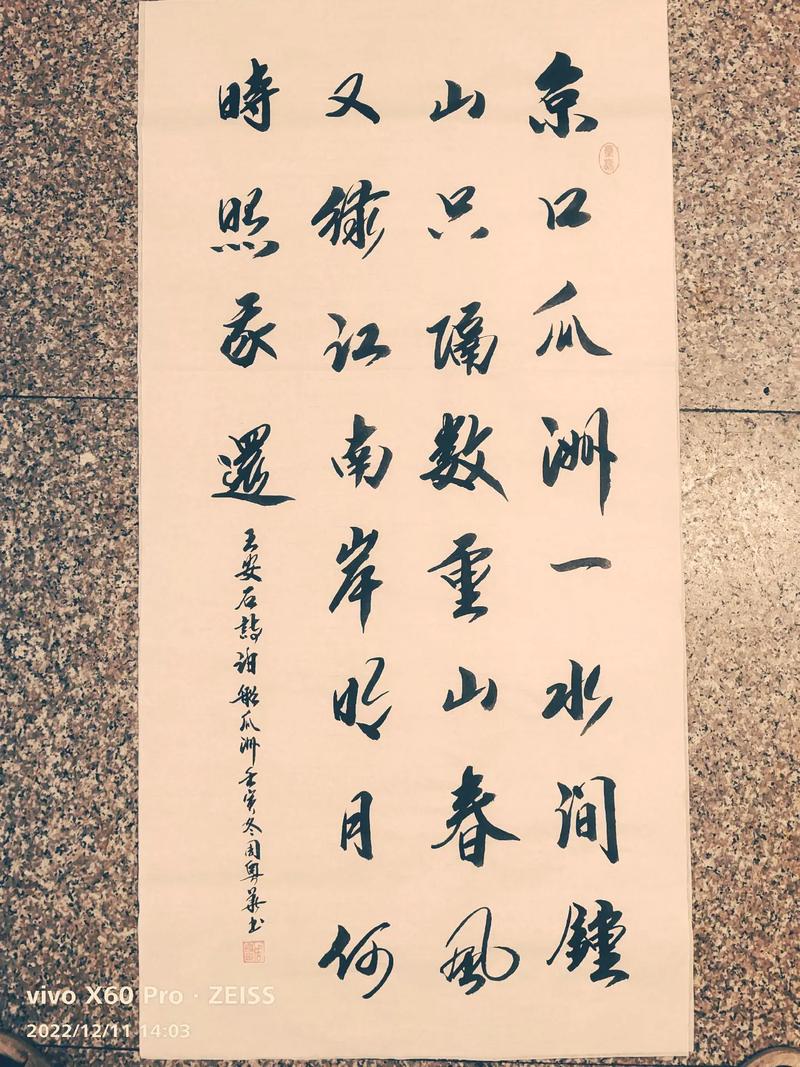 京口瓜洲一水间鍾
山只隔数重山春風
又绿江南岸明月何
時照我還
王安石詩泊船瓜洲壬寅冬周粤華书
vivo X60 Pro · ZEISS
2022/12/11 14:03